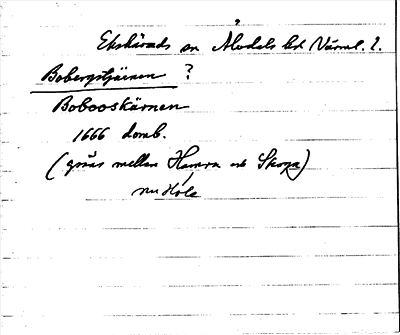 Ekshärads sn Älvdals hd Värml. l.
Bobergstjärnen ?
Bobooskärnen
1666 domb.
(gräns mellan Hamra och Skoga)
nu Höle